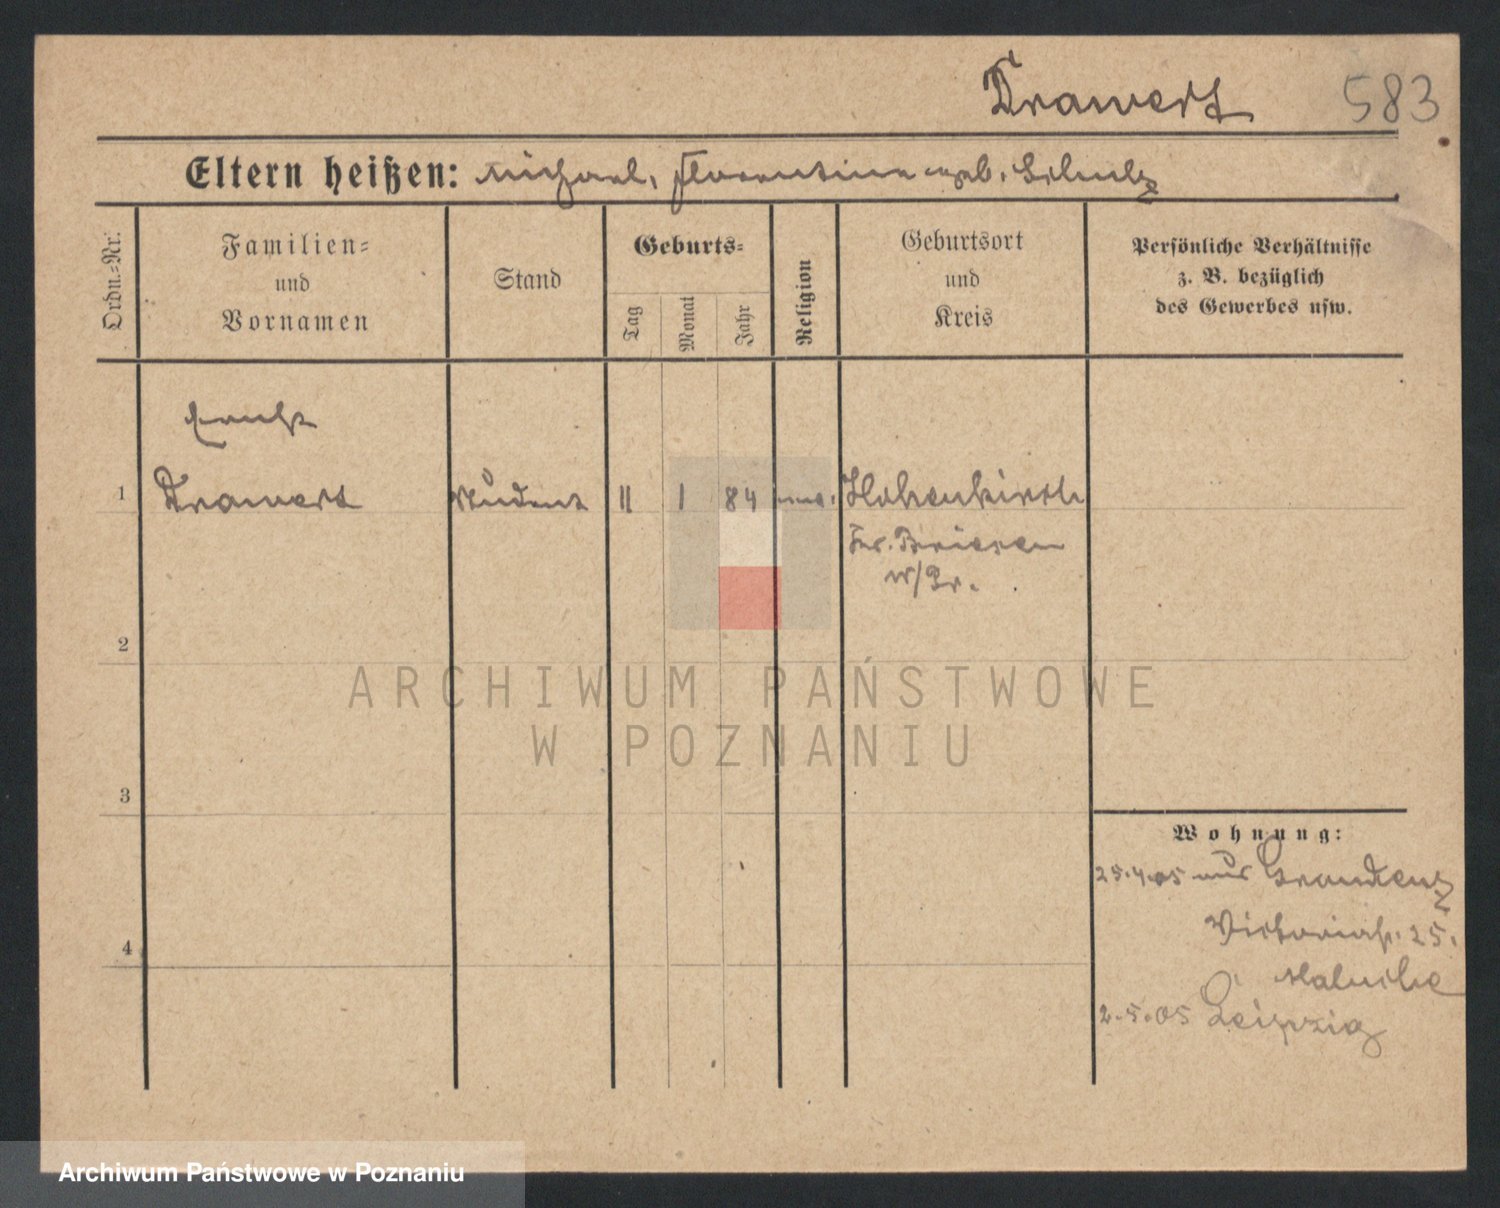 Drawert 583
Eltern heißen: Michael, Florentine geb. Schulz
Ordn.=Nr.
Familien=
und
Vornamen
Stand
Geburts=
Tag
Monat
Jahr
Religion
Geburtsort
und
Kreis
Persönliche Verhältnisse
z. B. bezüglich
des Gewerbes usw.
Ernst
1 Drawert Student 11 1 84 Hohenkirch
Kr. Briesen
W/Pr.
2
3
4
Wohnung:
25.4.05 aus Graudenz
Victoriastr. 25.
2.5.05 Leipzig
ARCHIWUM PAŃSTWOWE
W POZNANIU
Archiwum Państwowe w Poznaniu